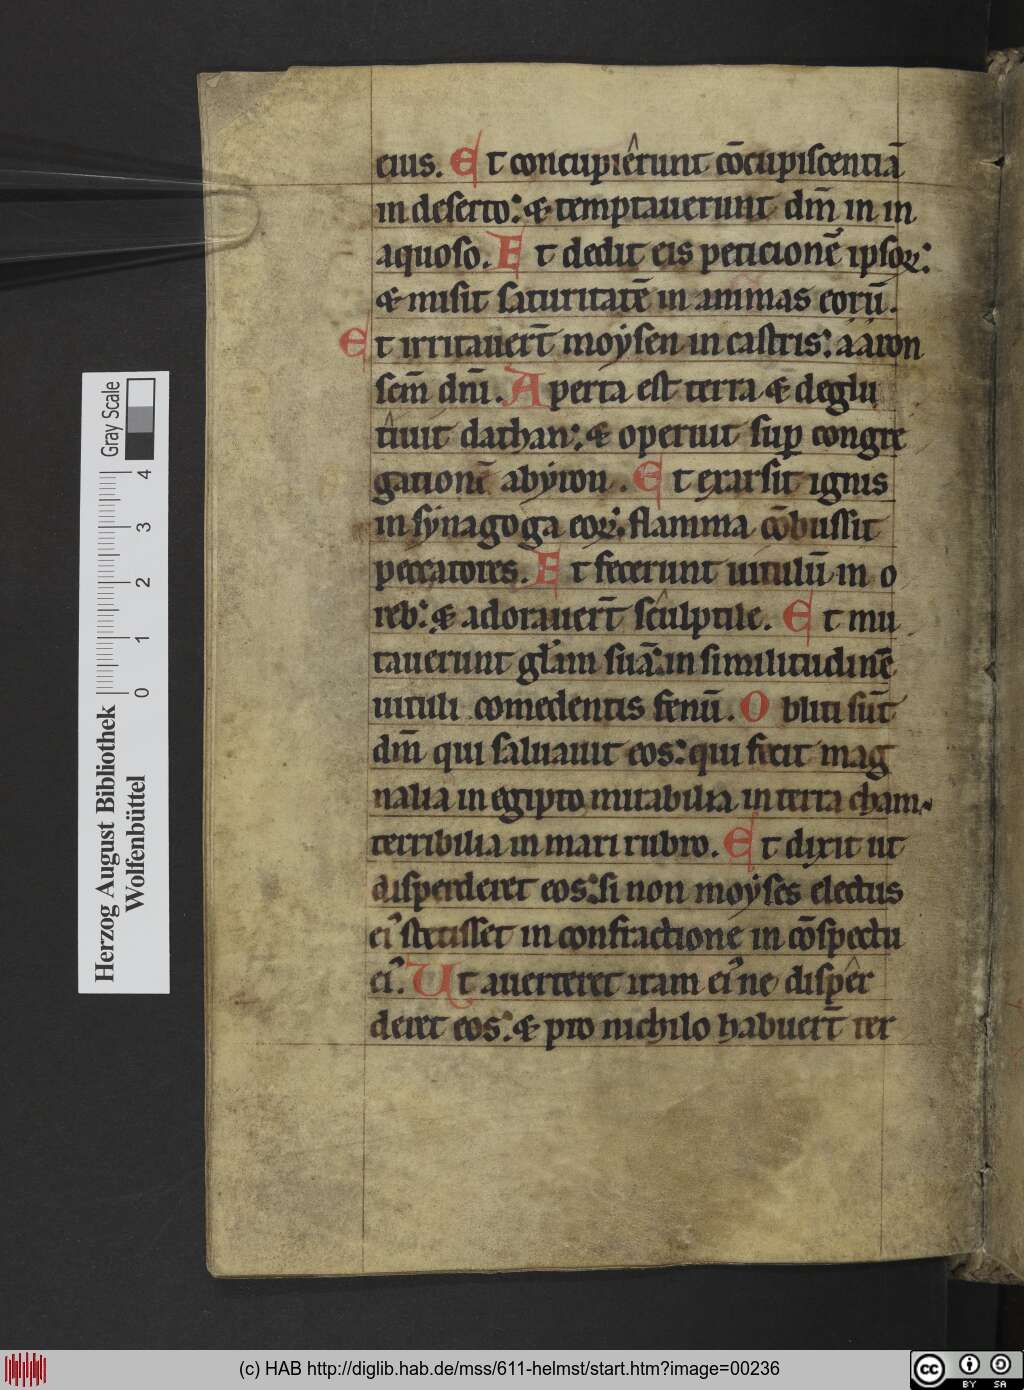 eius. Et concupierunt cōcupiscentiā
in deserto: & temptauerunt dm̄ in in
aquoso. Et dedit eis peticionē ipsoꝝ:
& misit saturitatē in animas eorū.
Et irritauer̄t moysen in castris: aaron
scm̄ dn̄i. Aperta est terra & deglu
tiuit dathan: & operuit sup̱ congre
gationē abyron. Et exarsit ignis
in synagoga eoꝝ: flamma cōbussit
peccatores. Et fecerunt uitulū in o
reb: & adorauer̄t sculptile. Et mu
tauerunt gl̄am suā: in similitudinē
uituli comedentis fenū. Obliti sūt
dm̄ qui saluauit eos: qui fecit mag
nalia in egipto mirabilia in terra cham.
terribilia in mari rubro. Et dixit ut
disperderet eos: si non moyses electus
ei᾽ stetisset in confractione in cōspectu
ei᾽. Ut auerteret iram ei᾽ ne disper
deret eos: & pro nichilo habuer̄t ter
Herzog August Bibliothek
Wolfenbüttel
0 1 2 3 4
Gray Scale
(c) HAB http://diglib.hab.de/mss/611-helmst/start.htm?image=00236
cc BY SA